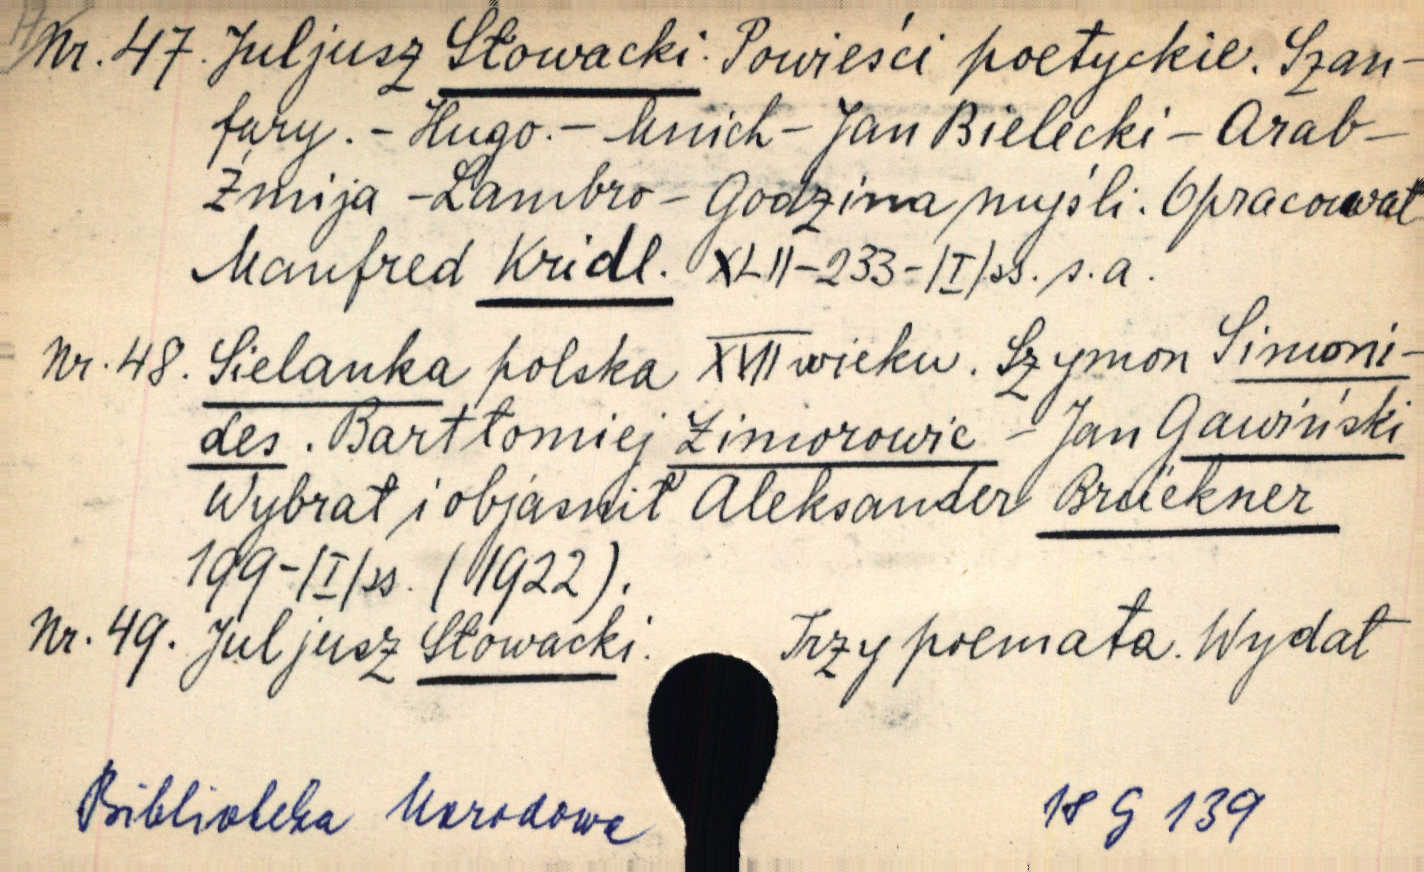 Nr. 47. Juljusz Słowacki. Powieści poetyckie. Szan-
fary. - Hugo. - Mnich - Jan Bielecki - Arab -
Żmija - Lambro - Godzina myśli. Opracował
Manfred Kridl. XLII-233-/I/ss. s.a.
Nr. 48. Sielanka polska XVII wieku. Szymon Simoni-
des. Bartłomiej Zimorowic - Jan Gawiński
Wybrał i objasnił Aleksander Brückner
199-/I/ss. (1922).
Nr. 49. Juljusz Słowacki. Trzy poemata. Wydał
Biblioteka Narodowa 18 G 139